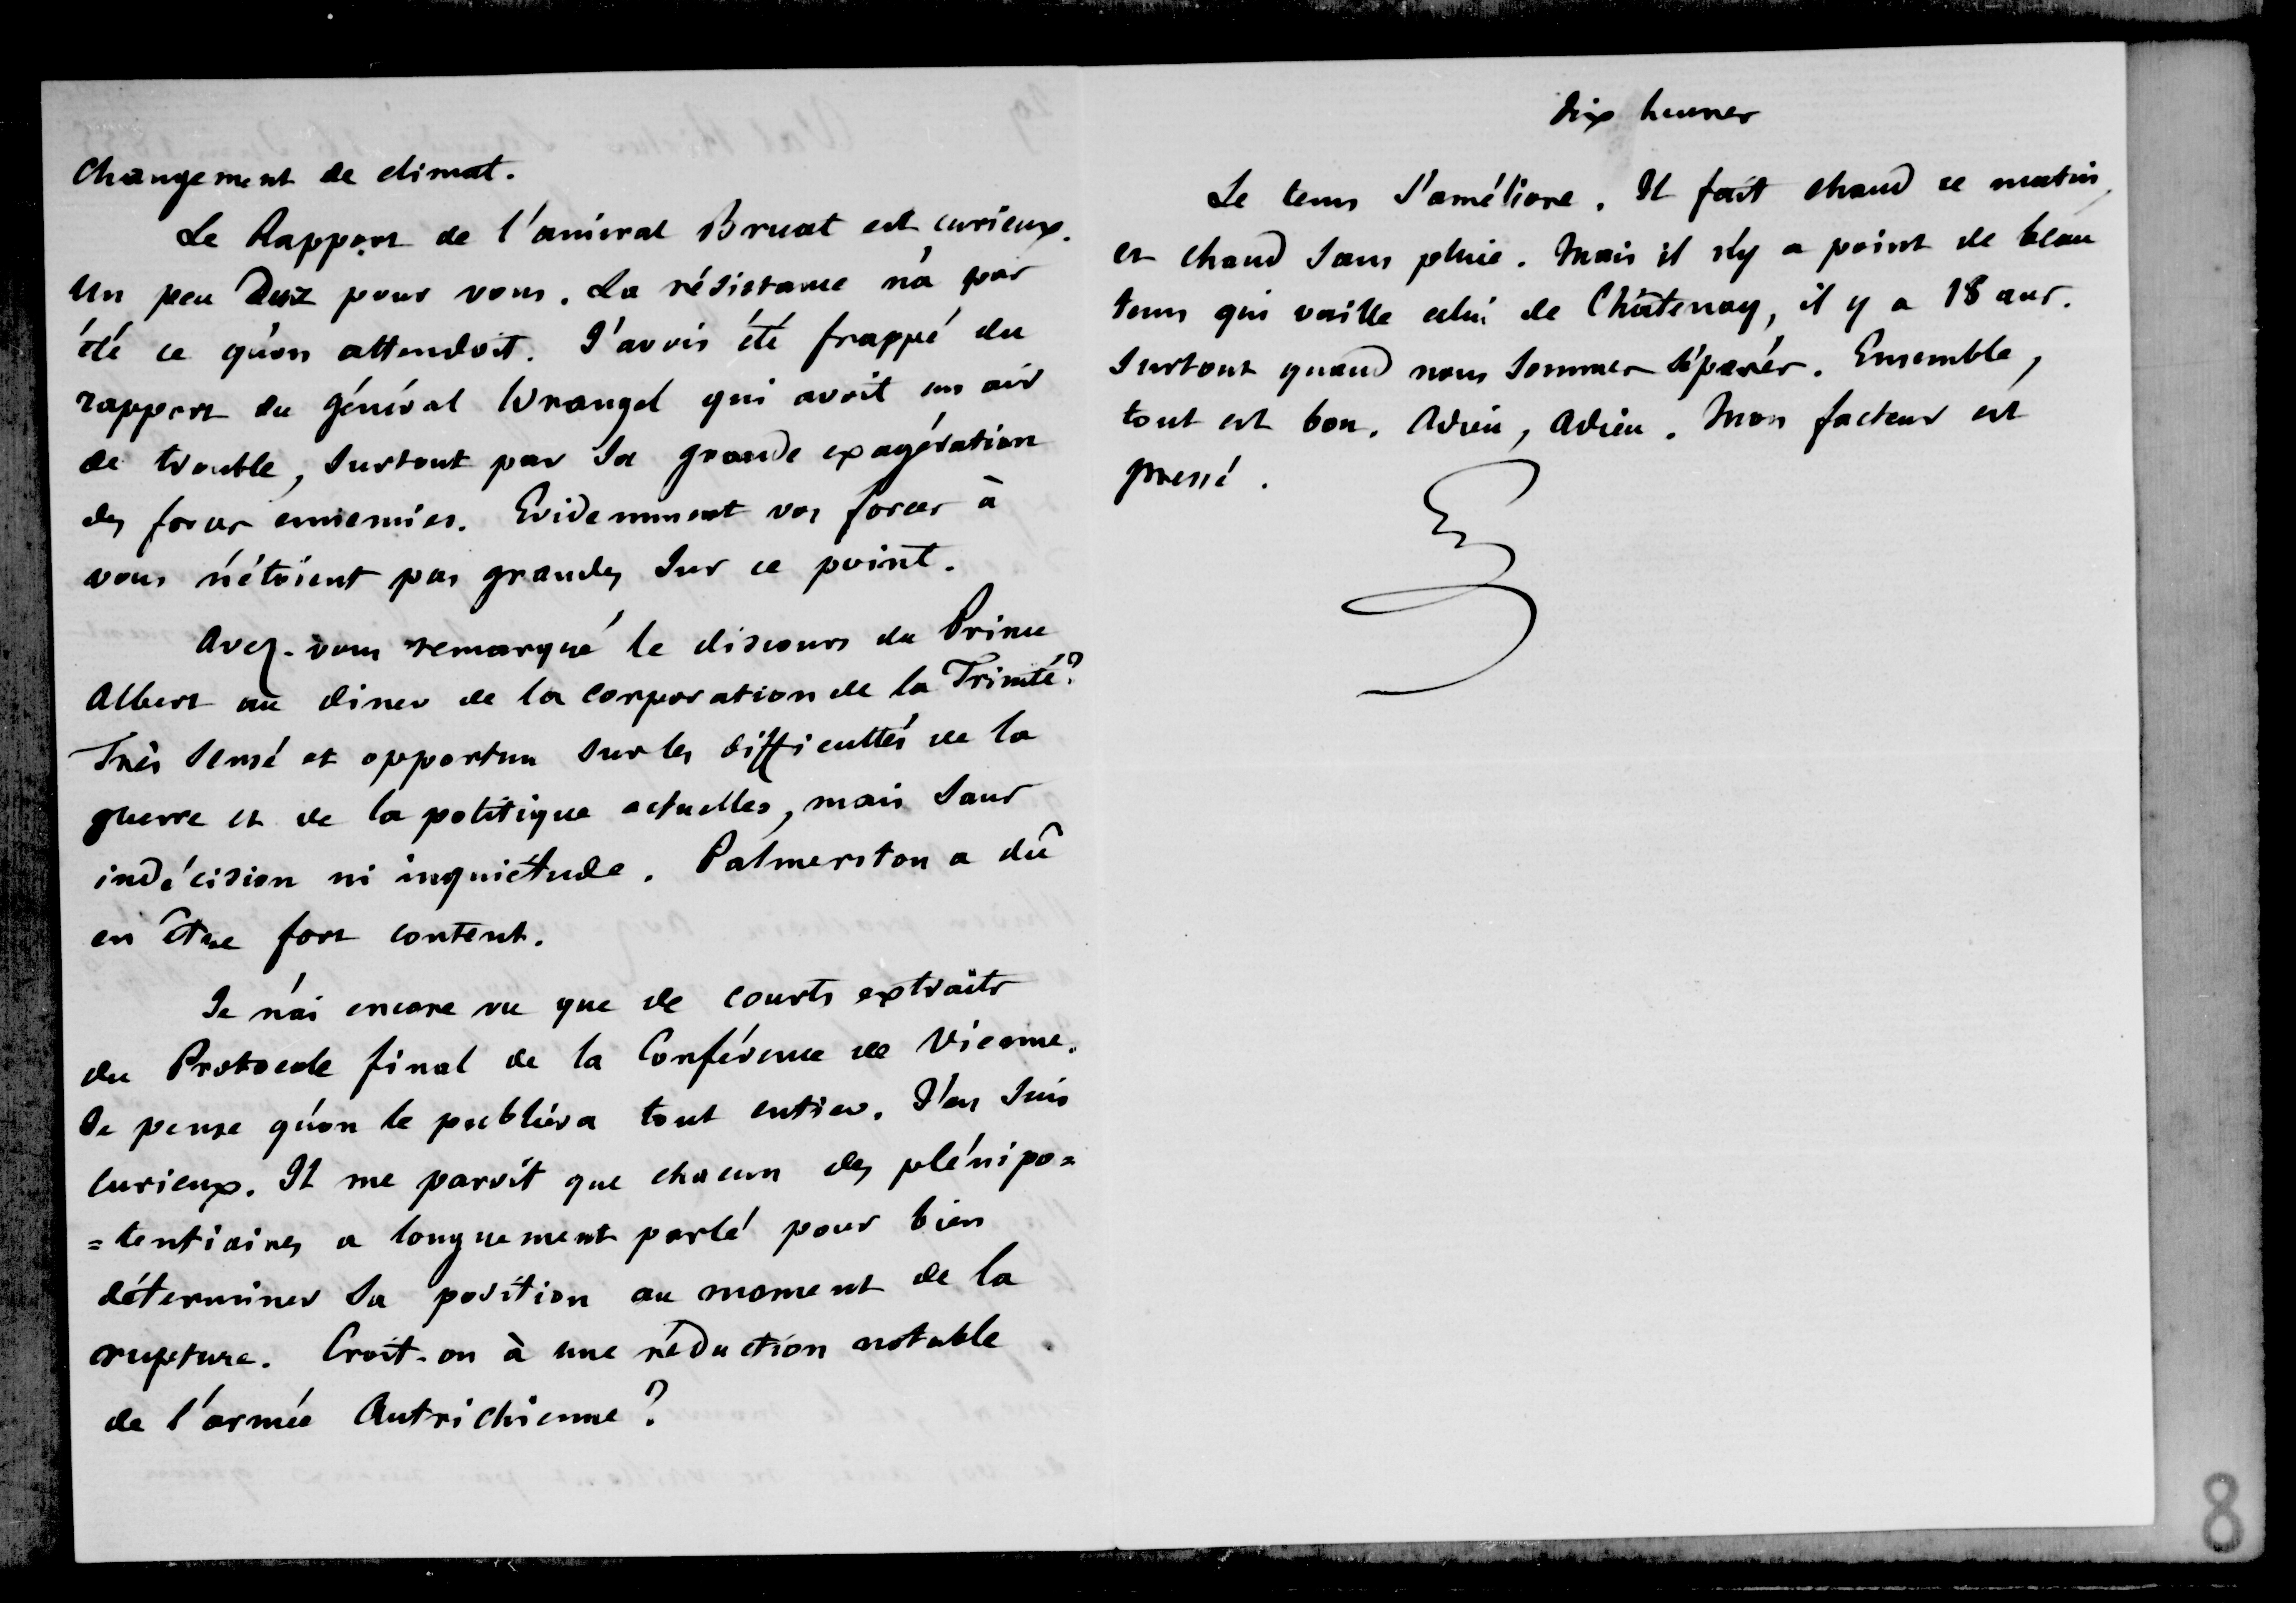 changement de climat.
Le Rapport de l'amiral Bruat est curieux.
Un peu dur pour vous. La résistance n'a pas
été ce qu'on attendoit. J'avois été frappé du
rapport du général Wrangel qui avoit un air
de trouble, surtout par sa grande exagération
des forces ennemies. Evidemment vos forces à
vous n'étoient pas grandes sur ce point.
Avez-vous remarqué le discours du Prince
Albert au diner de la corporation de la Trinité?
Très sensé et opportun sur les difficultés de la
guerre et de la politique actuelles, mais sans
indécision ni inquiétude. Palmerston a dû
en être fort content.
Je n'ai encore vu que de courts extraits
du Protocole final de la Conférence de Vienne.
Je pense qu'on le publiera tout entier. J'en suis
curieux. Il me paroît que chacun des plénipo=
=tentiaires a longuement parlé pour bien
déterminer sa position au moment de la
rupture. Croit-on à une réduction notable
de l'armée Autrichienne?
Dix heures
Le tems s'améliore. Il fait chaud ce matin,
et chaud sans pluie. Mais il n'y a point de beau
tems qui vaille celui de Châtenay, il y a 18 ans.
Surtout quand nous sommes séparés. Ensemble,
tout est bon. Adieu, Adieu. Mon facteur est
pressé.
8